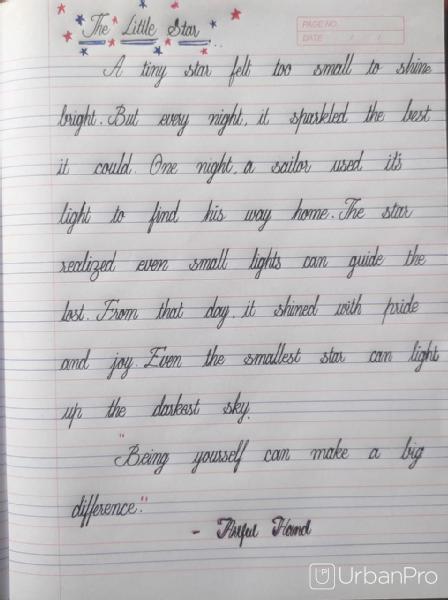 The Little Star
PAGE NO.
DATE / /
A tiny star felt too small to shine
bright. But every night, it sparkled the best
it could. One night, a sailor used it's
light to find his way home. The star
realized even small lights can guide the
lost. From that day, it shined with pride
and joy. Even the smallest star can light
up the darkest sky.
"Being yourself can make a big
difference."
- Artful Hand
UrbanPro